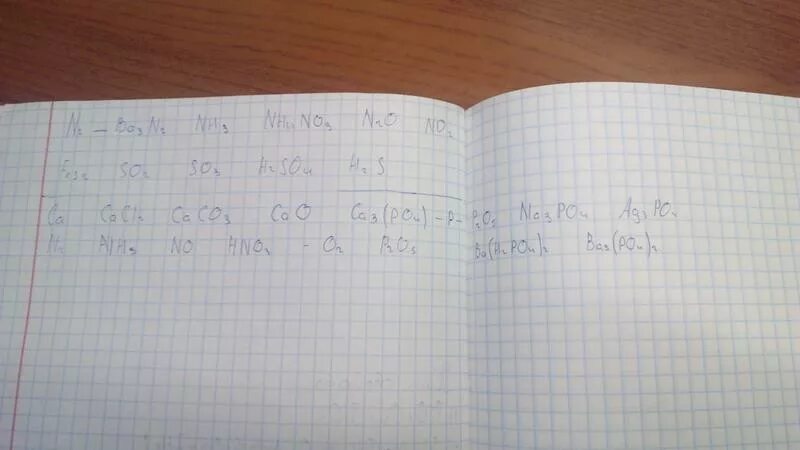 N₂ — Ba₃N₂ NH₃ NH₄NO₃ N₂O NO₂
SO₂ SO₃ H₂SO₄ H₂S
Ca CaCl₂ CaCO₃ CaO Ca₃(PO₄) – P – P₂O₅ Na₃PO₄ Ag₃PO₄
N₂ NO HNO₃ - O₂ P₂O₅ Ba(H₂PO₄)₂ Ba₃(PO₄)₂